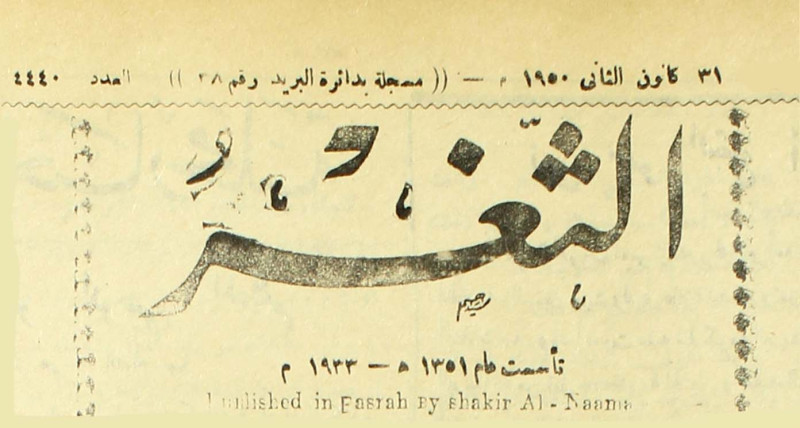 ٣١ كانون الثاني ١٩٥٠ م — (( مسجلة بدائرة البريد رقم ٣٨ )) العدد ٤٤٤٠
الثغر
تأسست عام ١٣٥١ ه — ١٩٣٣ م
Published in Basrah By shakir Al - Naama